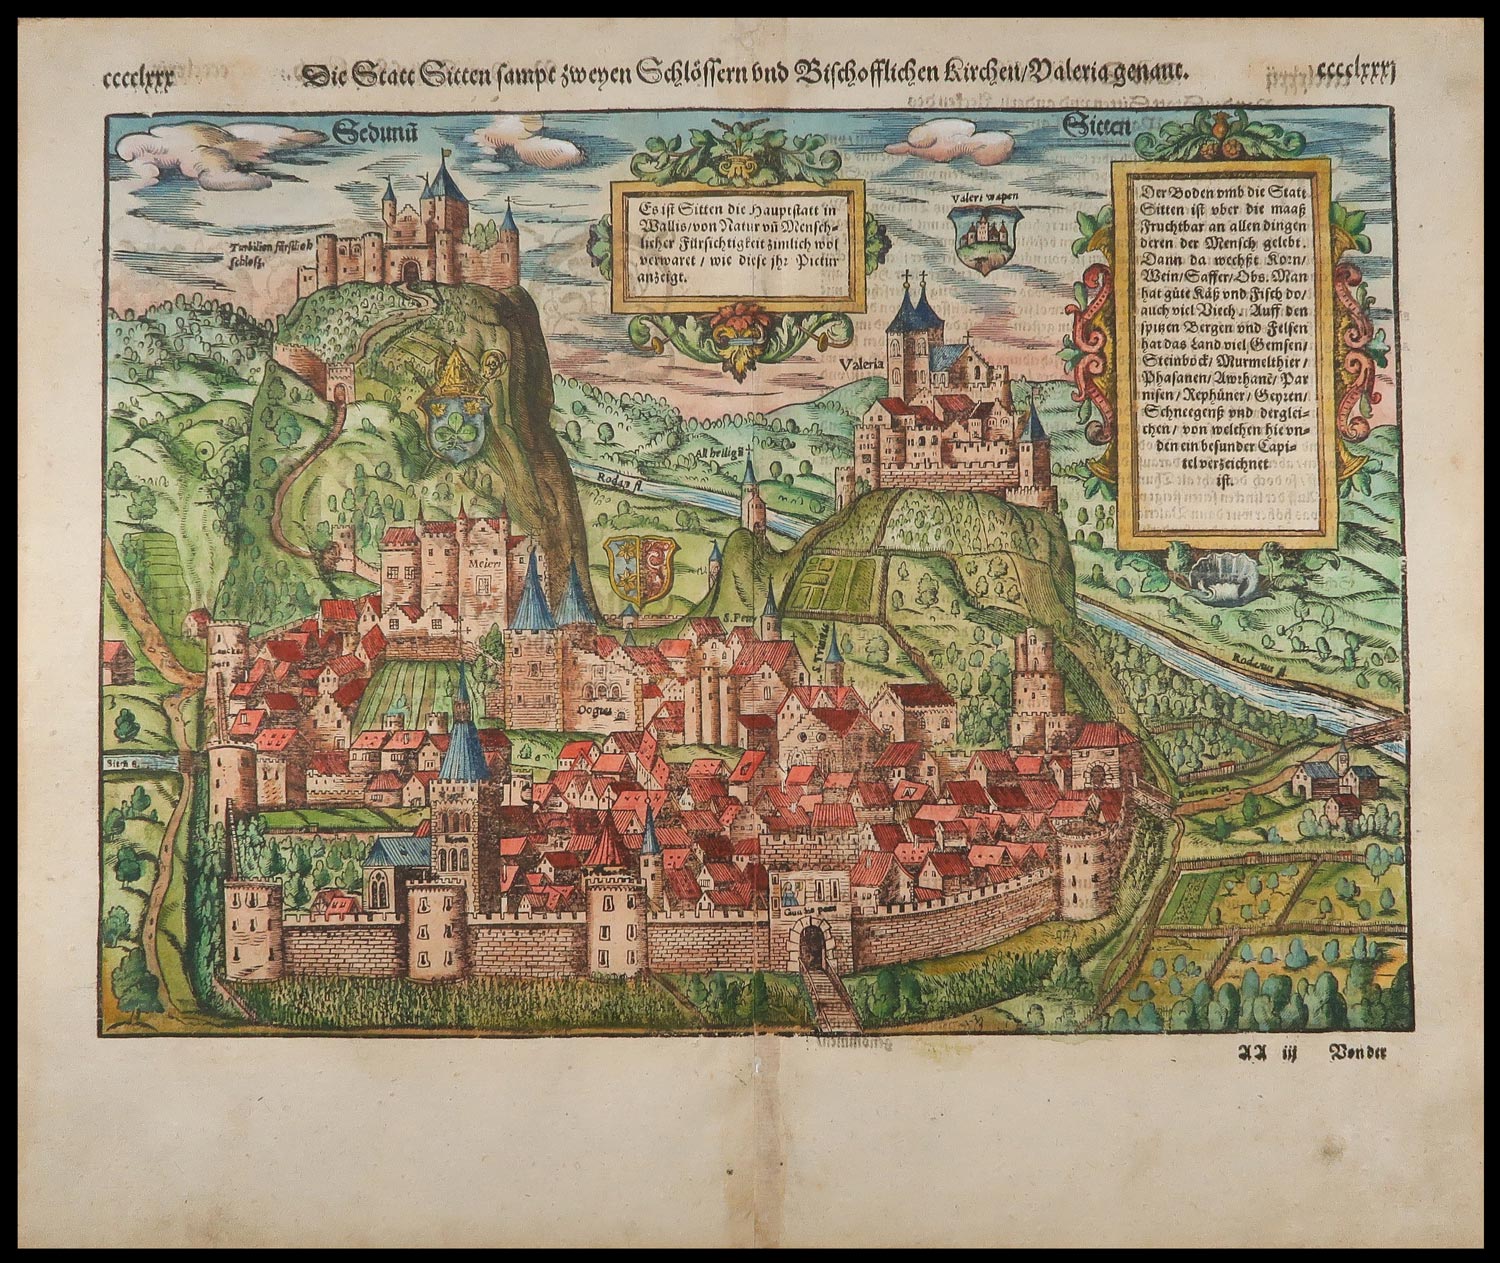 cccclxxx
Die Statt Sitten sampt zweyen Schlössern vnd Bischofflichen Kirchen/Valeria genant.
cccclxxxj
Sedunū
Sitten
Es ist Sitten die Hauptstatt in
Wallis/von Natur vñ Mensch-
licher Fürsichtigkeit zimlich wol
verwaret/wie diese jhr Pictur
anzeigt.
Valeri wapen
Der Boden vmb die Statt
Sitten ist vber die maaß
Fruchtbar an allen dingen
deren der Mensch gelebt.
Dann da wechßt Korn/
Wein/Saffer/Obs. Man
hat güte Käß vnd Fisch do/
auch viel Viech. Auff den
spitzen Bergen vnd Felsen
hat das Land viel Gemsen/
Steinböck/Murmelthier/
Phasanen/Awrhanē/Par
nisen/Rephüner/Geyren/
Schneegenß vnd derglei-
chen/von welchen hie vn-
den ein besunder Capi-
tel verzeichnet
ist.
Turbilien fürstlich
schloß.
Valeria
All heiligē
Rodan fl.
Meieri
S. Peter
Rodanus fl.
Dogtei
AA iij Von der